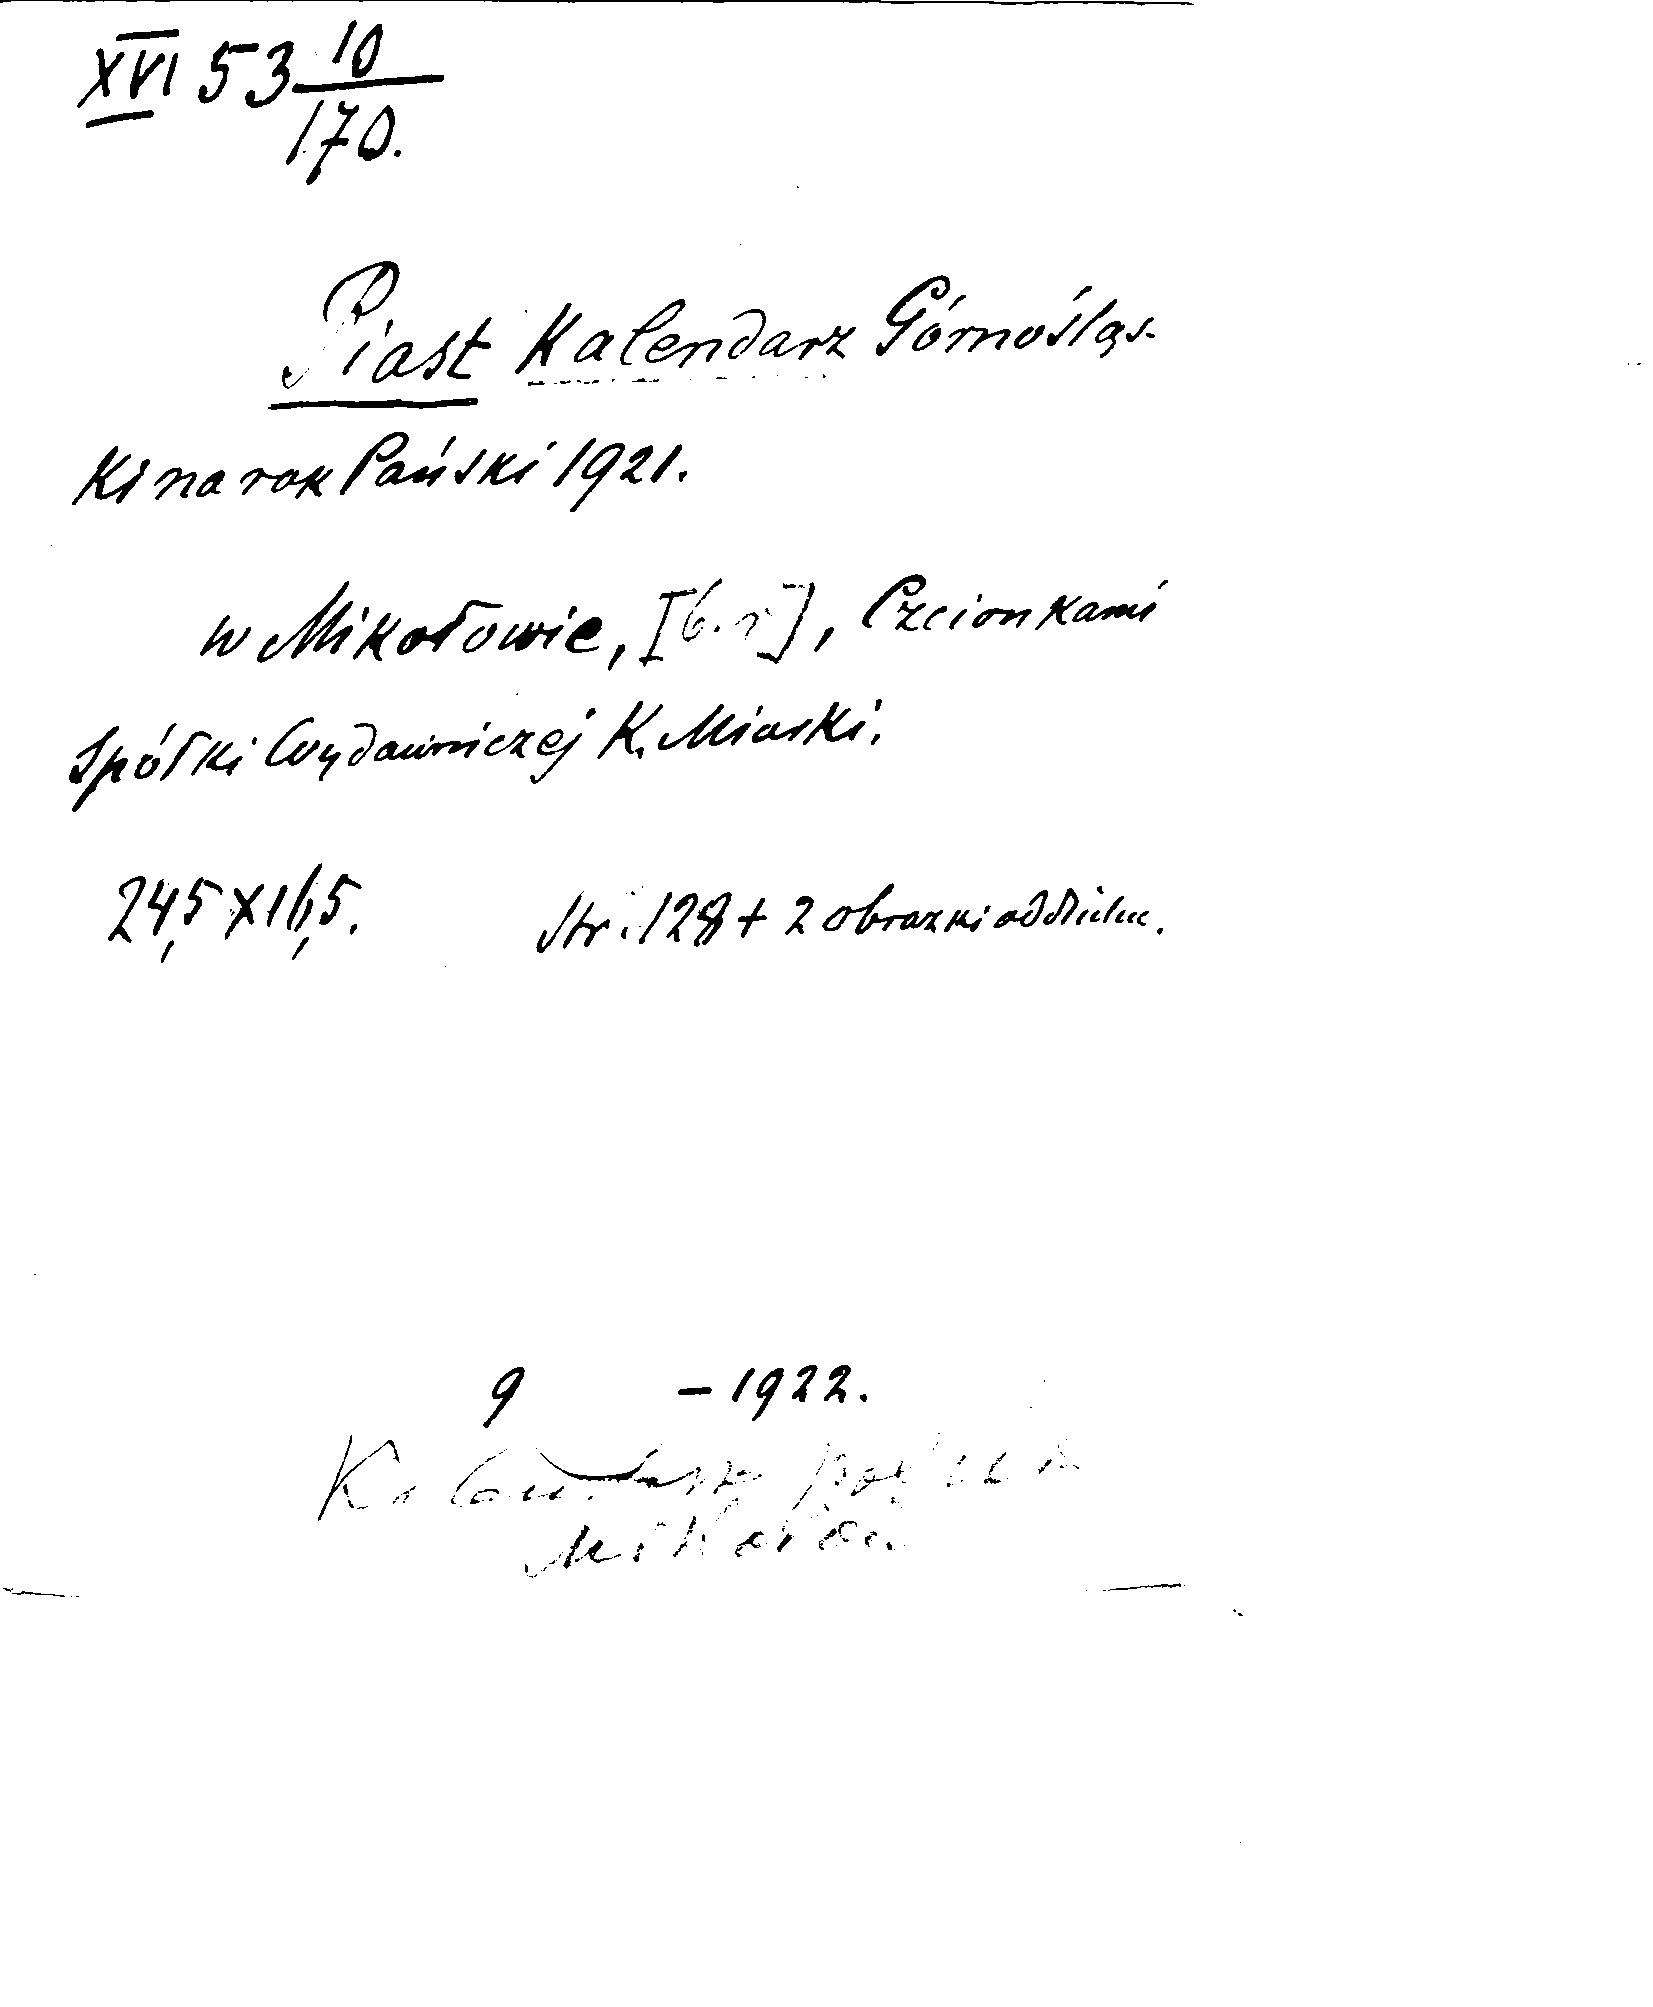 XVI 53 10
170.
Piast Kalendarz Górnośląs-
ki na rok Pański 1921.
w Mikołowie, [b.r], Czcionkami
Spółki Wydawniczej K. Miarki.
24,5 x 16,5. Str. 128 + 2 obrazki oddzieln.
9 - 1922.
Kalendarz polski
Mikołów